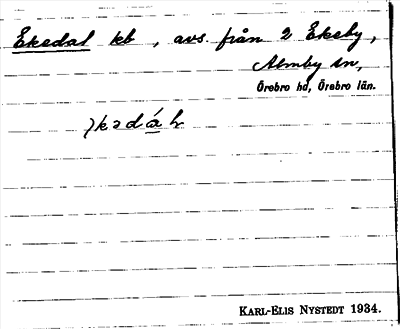 Ekedal kb, avs. från 2 Ekeby,
Almby sn,
Örebro hd, Örebro län.
KARL-ELIS NYSTEDT 1934.